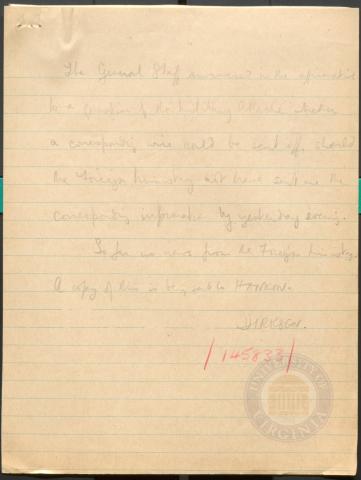 The General Staff answered in the affirmative
to a question of the Military Attaché whether
a corresponding wire could be sent off, should
the Foreign Ministry not have sent me the
corresponding information by yesterday evening.
So far no news from the Foreign Ministry.
A copy of this is being sent to HANKOW.
DIRKSEN.
/145833/
UNIVERSITY OF VIRGINIA